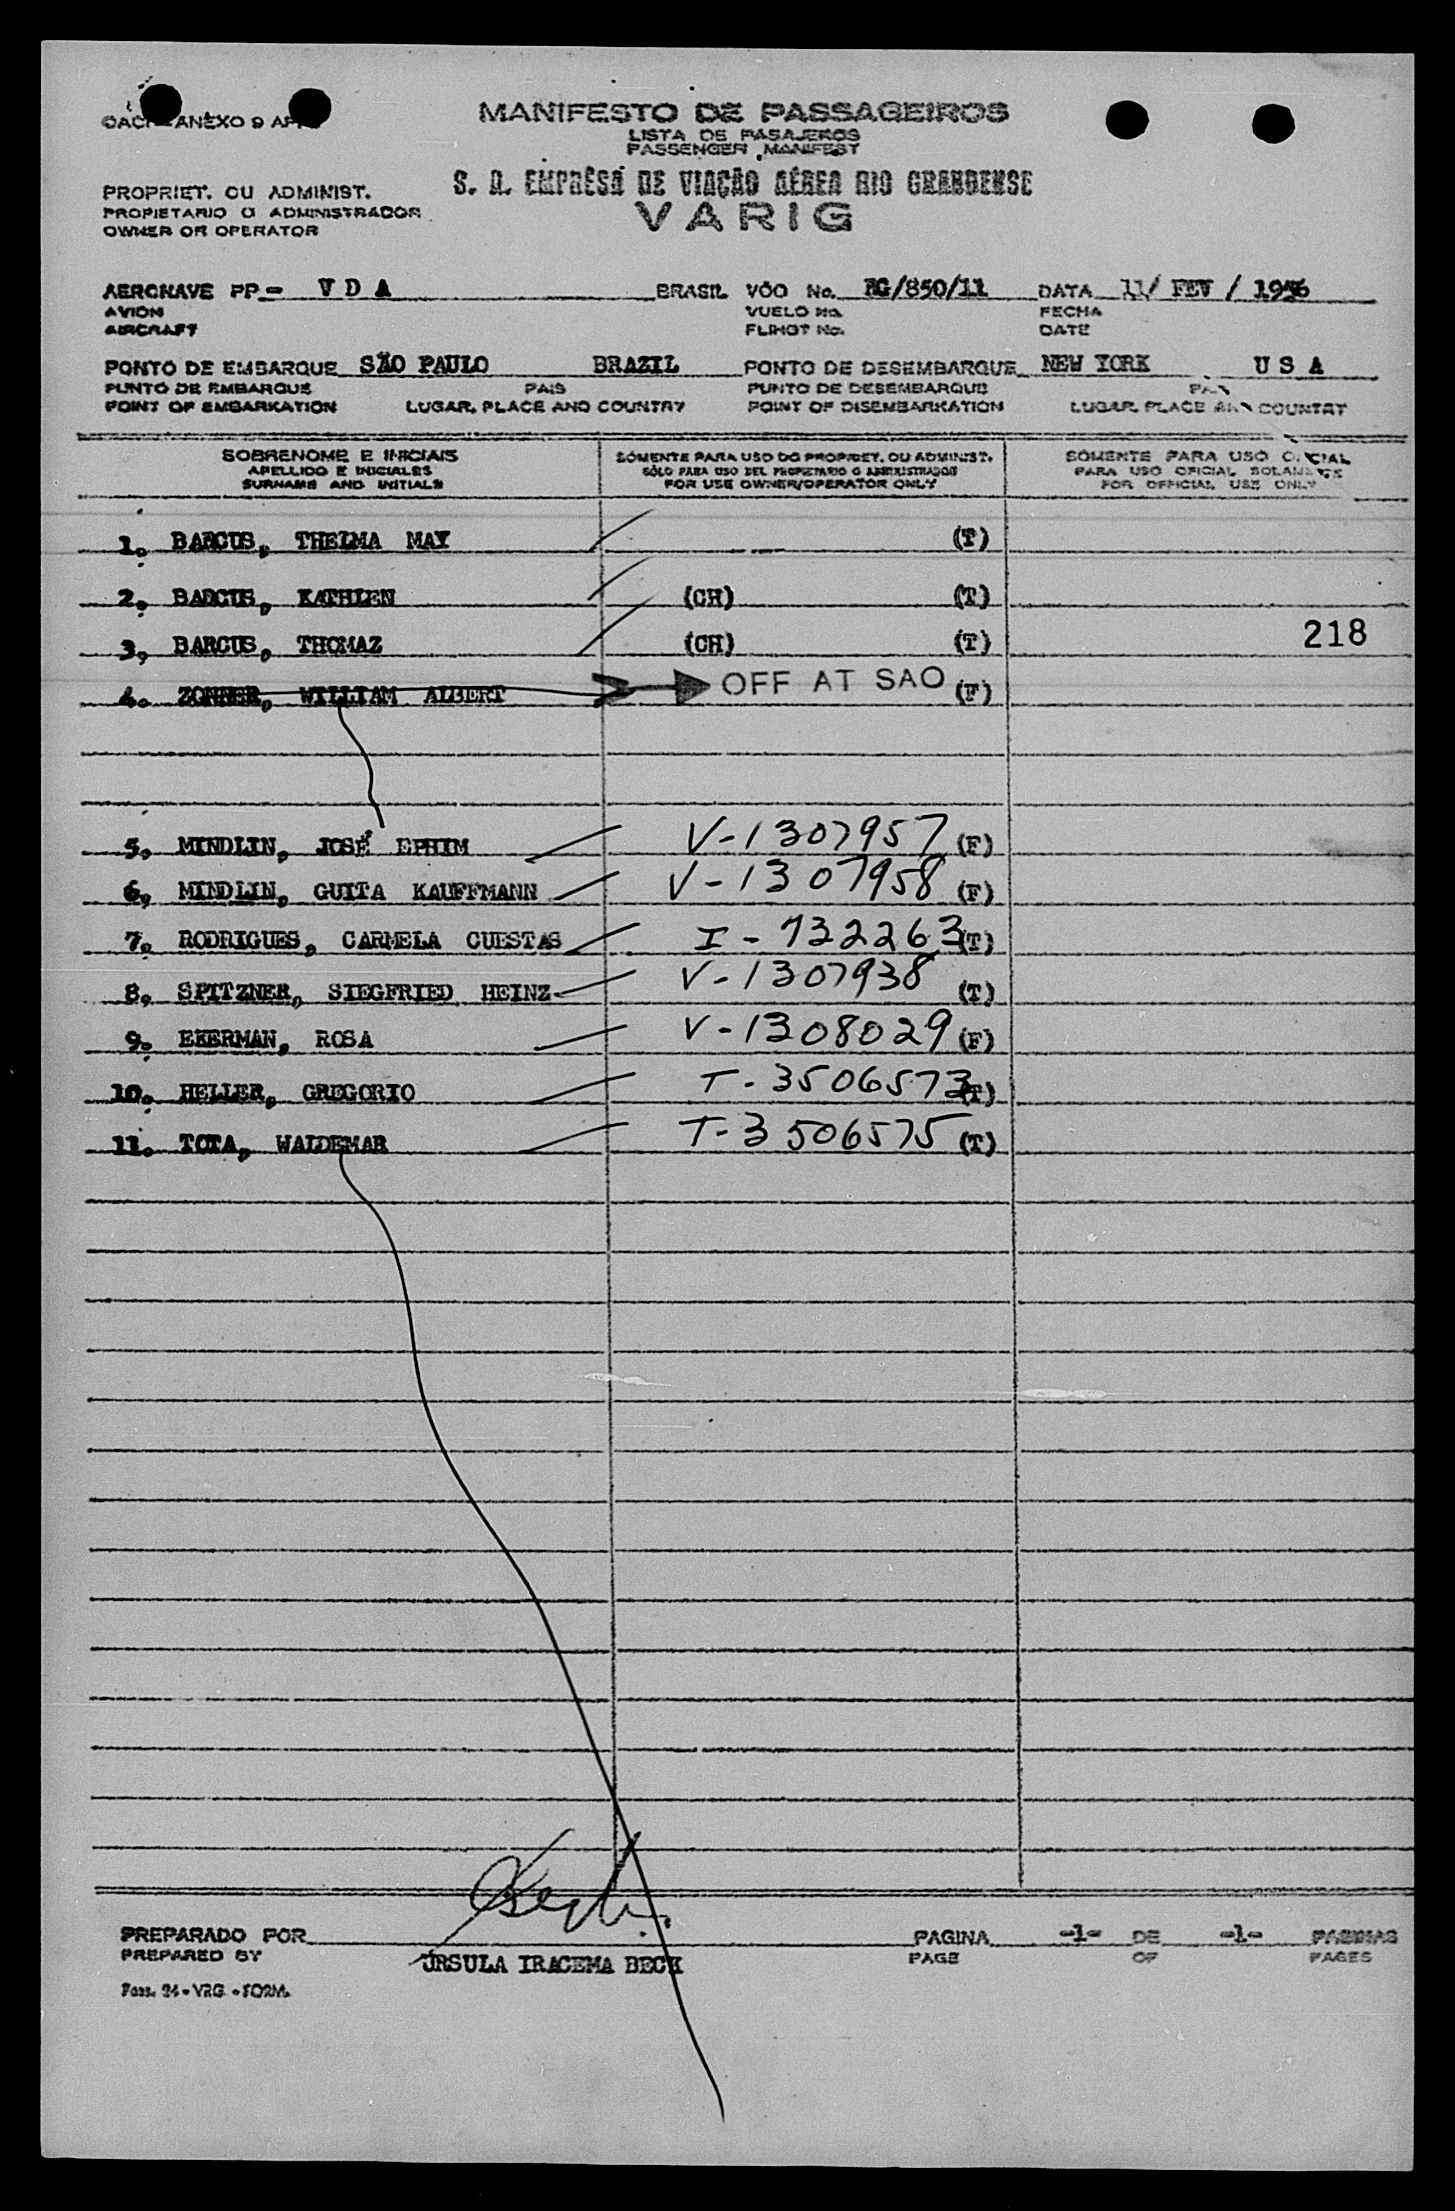 MANIFESTO DE PASSAGEIROS
ANEXO 9
LISTA DE PASAJEROS
PASSENGER MANIFEST
S. A. EMPRÊSA DE VIAÇÃO AÉREA RIO GRANDENSE
PROPRIET. OU ADMINIST.
PROPIETARIO O ADMINISTRADOR
OWNER OR OPERATOR
VARIG
AERONAVE PP- V D A BRASIL VÔO No. RG/850/11 DATA 11/ FEV / 1956
AVION VUELO No. FECHA
AIRCRAFT FLIHGT No. DATE
PONTO DE EMBARQUE SÃO PAULO BRAZIL PONTO DE DESEMBARQUE NEW YORK U S A
PUNTO DE EMBARQUE PAIS PUNTO DE DESEMBARQUE
POINT OF EMBARKATION LUGAR, PLACE AND COUNTRY POINT OF DISEMBARKATION LUGAR, PLACE AND COUNTRY
SOBRENOME E INICIAIS SÓMENTE PARA USO DO PROPRIET. OU ADMINIST. SÓMENTE PARA USO OFICIAL
APELLIDO E INICIALES SÓLO PARA USO DEL PROPIETARIO O ADMINISTRADOR PARA USO OFICIAL SOLAMENTE
SURNAME AND INITIALS FOR USE OWNER/OPERATOR ONLY FOR OFFICIAL USE ONLY
1. BARCUS, THELMA MAY (T)
2. BARCUS, KATHLEN (CH) (T)
3, BARCUS, THOMAZ (CH) (T) 218
4. ZONNER, WILLIAM ALBERT OFF AT SAO (F)
5. MINDLIN, JOSÉ EPHIM V-1307957 (F)
6, MINDLIN, GUITA KAUFFMANN V-1307958 (F)
7. RODRIGUES, CARMELA CUESTAS I-732263 (T)
8, SPITZNER, SIEGFRIED HEINZ V-1307938 (T)
9. EKERMAN, ROSA V-1308029 (F)
10. HELLER, GREGORIO T-3506573 (T)
11. TOTA, WALDEMAR T-3506575 (T)
PREPARADO POR PAGINA -1- DE -1- PAGINAS
PREPARED BY URSULA IRACEMA BECK PAGE OF PAGES